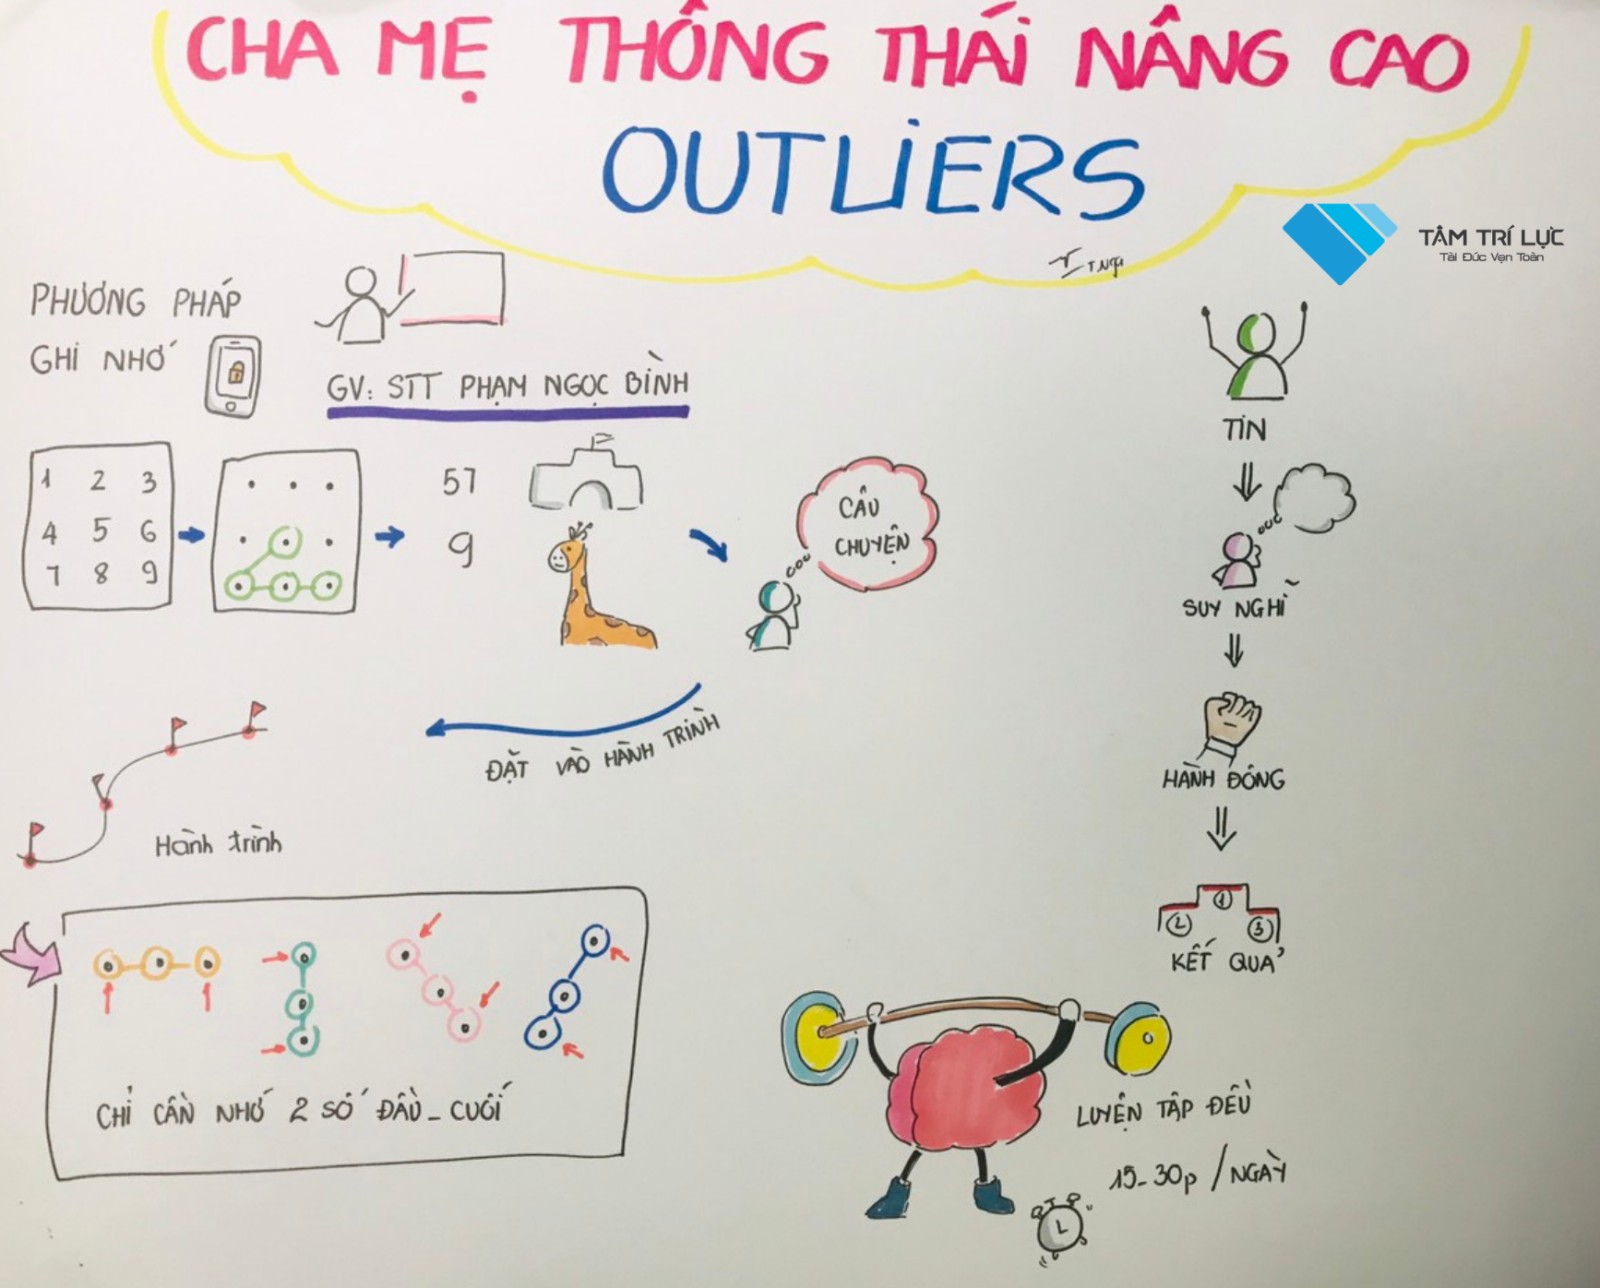 CHA MẸ THÔNG THÁI NÂNG CAO
OUTLIERS
TÂM TRÍ LỰC
Tài Đức Vẹn Toàn
PHƯƠNG PHÁP
GHI NHỚ
GV: STT PHẠM NGỌC BÌNH
1 2 3
4 5 6
7 8 9
57
9
CÂU
CHUYỆN
ĐẶT VÀO HÀNH TRÌNH
Hành trình
CHỈ CẦN NHỚ 2 SỐ ĐẦU - CUỐI
TIN
SUY NGHĨ
HÀNH ĐỘNG
1
2
3
KẾT QUẢ
LUYỆN TẬP ĐỀU
15-30p / NGÀY